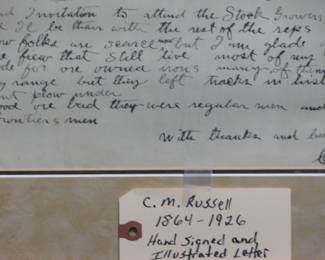 nd Invitation to attend the Stock Growers
d I'l be thair with the rest of the reps
ow folks are scarce but I am glade
d fiew that Still live most of my
de for ore owned irons many of them
y range but they left tracks in hist
nt plow under
ood ore bad they were regular men and
rontiers men
With thanks and be
C. M. Russell
1864-1926
Hand Signed and
Illustrated Letter